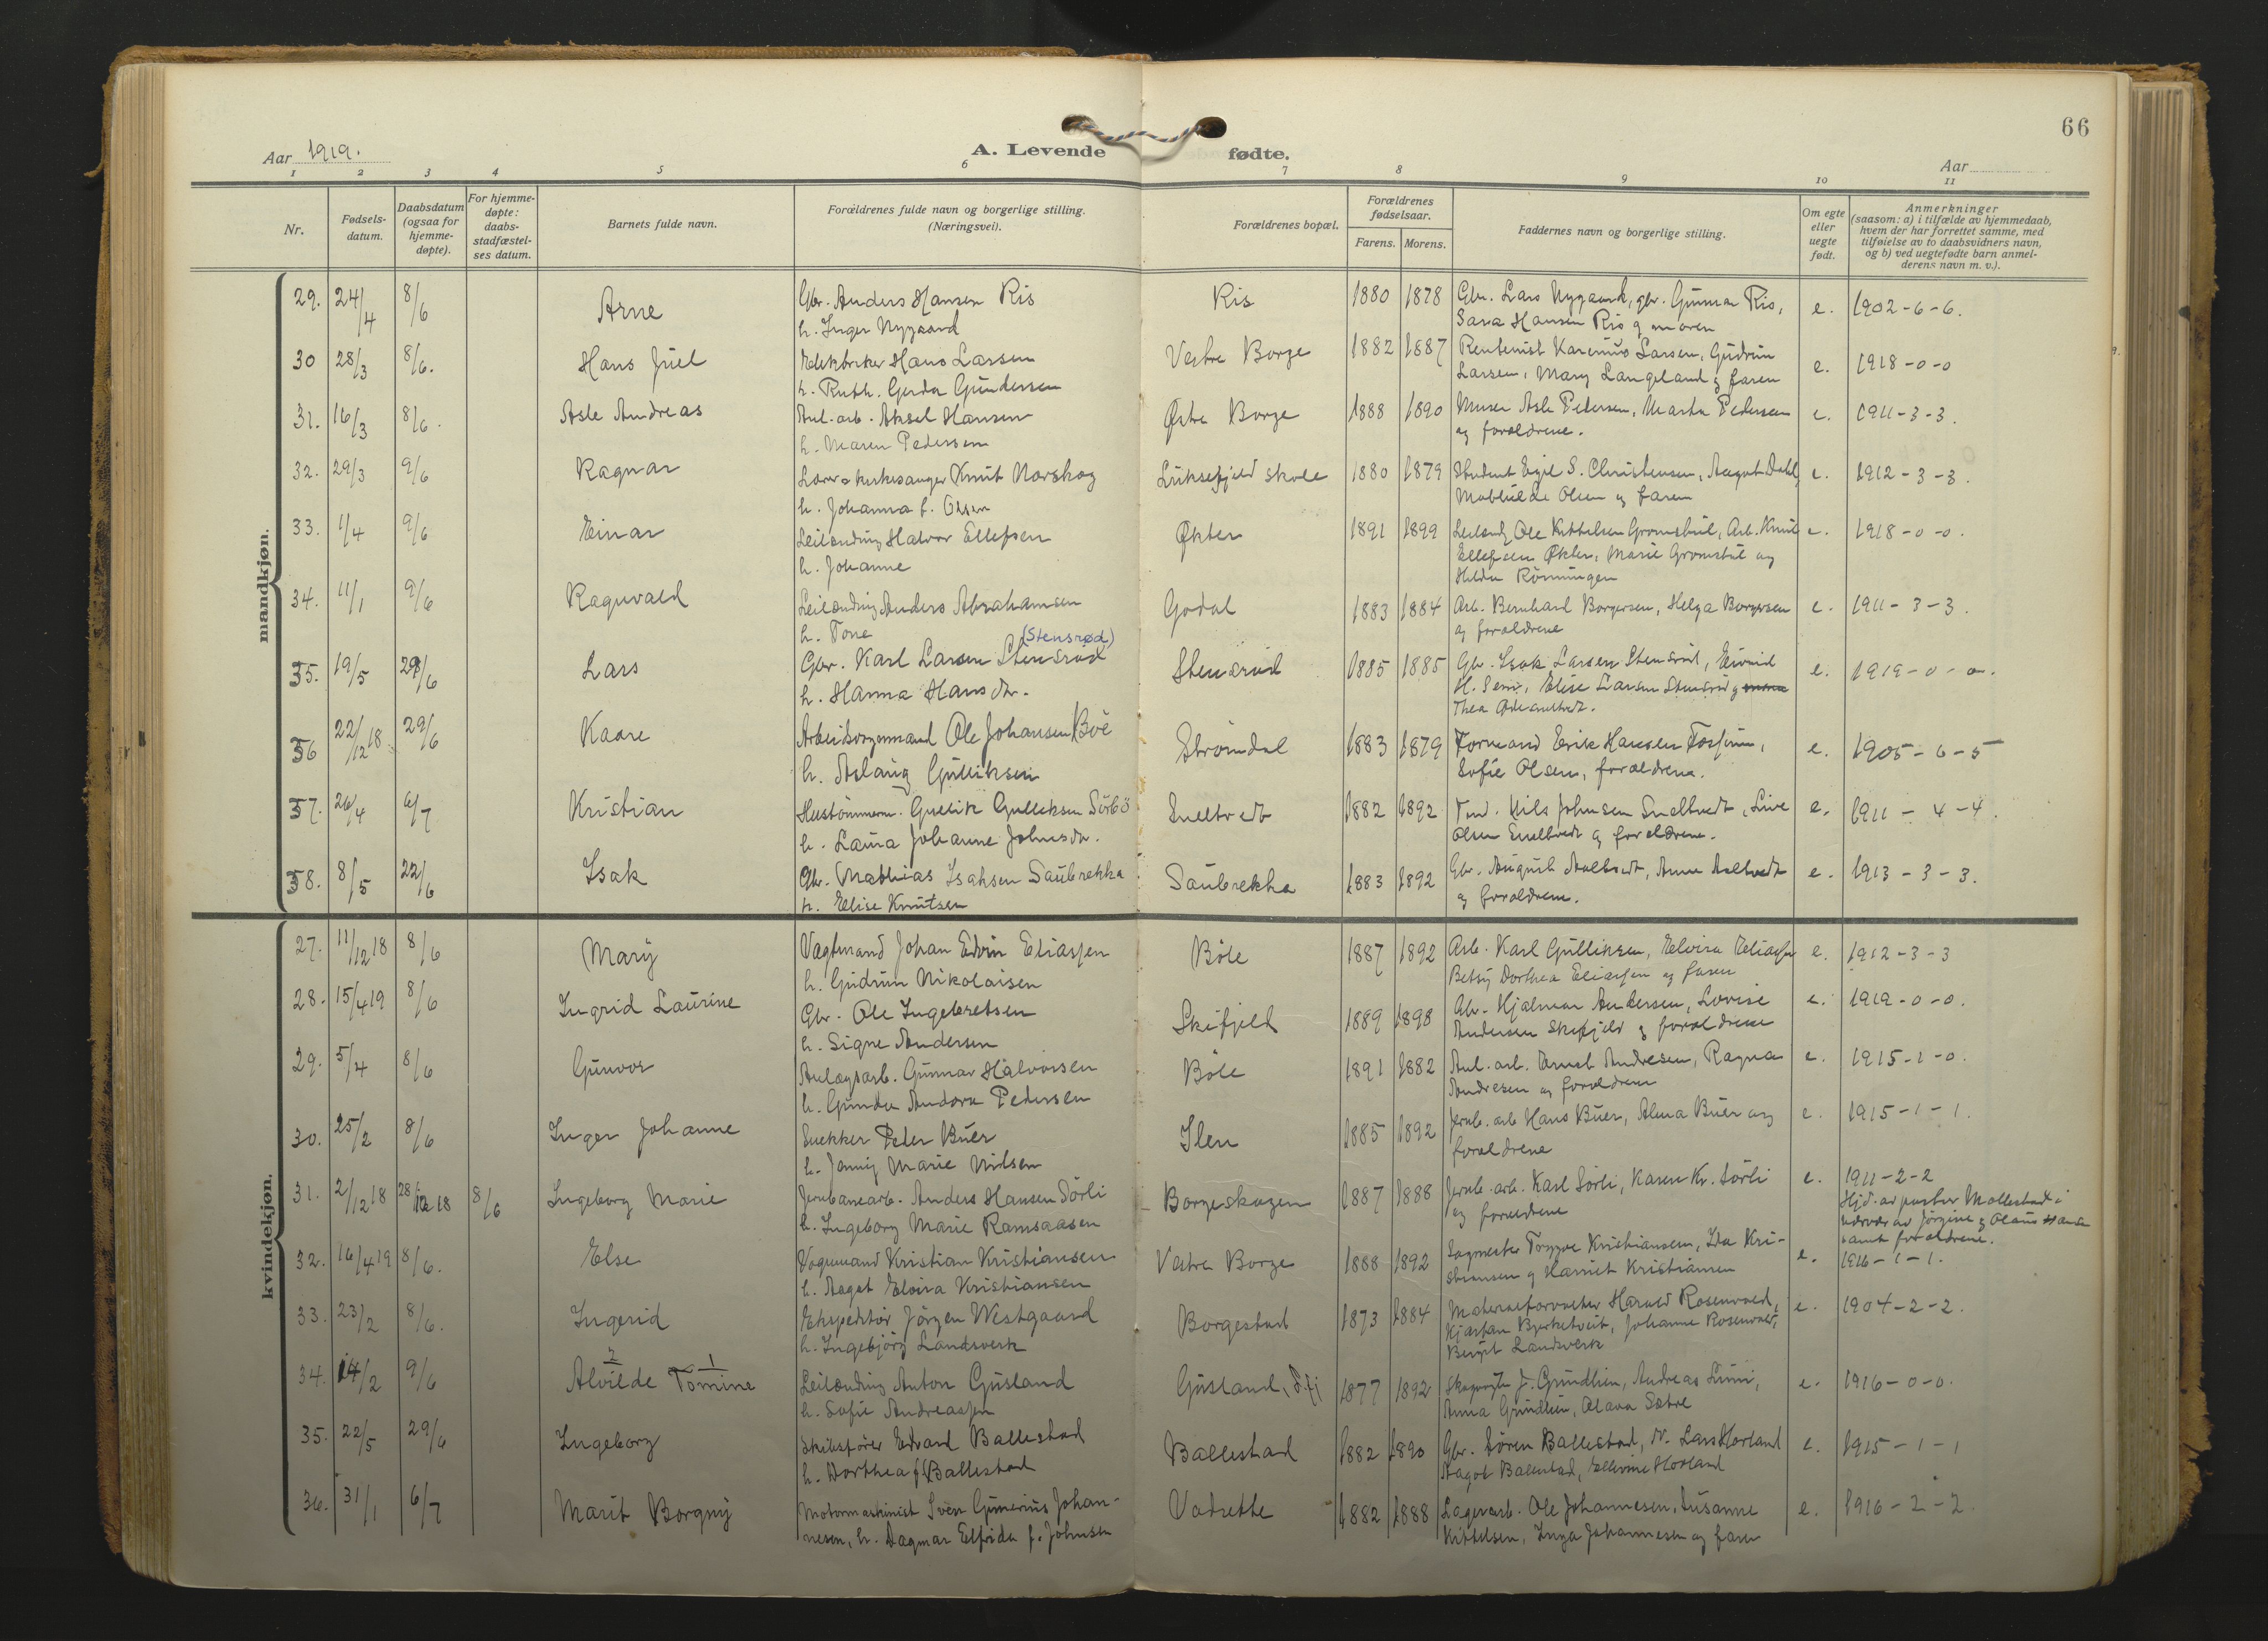 66
Aar 1919.
A. Levende fødte.
Aar
1 2 3 4 5 6 7 8 9 10 11
Nr.
Fødsels-
datum.
Daabsdatum
(ogsaa for
hjemme-
døpte).
For hjemme-
døpte:
daabs-
stadfæstel-
ses datum.
Barnets fulde navn.
Forældrenes fulde navn og borgerlige stilling.
(Næringsvei).
Forældrenes bopæl.
Forældrenes
fødselsaar.
Farens. Morens.
Faddernes navn og borgerlige stilling.
Om egte
eller
uegte
født.
Anmerkninger
(saasom: a) i tilfælde av hjemmedaab,
hvem der har forrettet samme, med
tilføielse av to daabsvidners navn,
og b) ved uegtefødte barn anmel-
derens navn m. v.).
mandkjøn.
29. 24/4 8/6 Arne Gbr. Anders Hansen Ris Ris 1880 1878 Gbr. Lars Nygaard, gbr. Gunnar Ris, e. 1902-6-6.
h. Inger Nygaard Sara Hansen Ris og moren
30 28/3 8/6. Hans Juel Hans Larsen Vestre Borge 1882 1887 Rentenist Larsen, Gudrun e. 1918-0-0
h. Ruth Gerda Gundersen Larsen, Mary Langeland og faren
31. 16/3 8/6. Asle Andreas Anl. arb. Aksel Hansen Østre Borge 1888 1890 Murer Asle Pedersen, Marta Pedersen e. 1911-3-3.
h. Maren Pedersen og forældrene.
32. 29/3 9/6 Ragnar Lærer & kirkesanger Knut Norskog Luksefjeld skole 1880 1879 Student Egil S. Christensen, Aagot Dahl, e. 1912-3-3.
h. Johanna f. Olsen Mathilde Olsen og faren
33. 1/4 9/6 Einar Leilænding Halvor Ellefsen Økter 1891 1899 Leilændg Ole Kittelsen Gromstul, Arb. Knut e. 1918-0-0.
h. Johanne Ellefsen Økter, Marie Gromstul og
Hilda Rönningen
34. 11/1 9/6 Ragnvald Leilænding Anders Abrahamsen Godal 1883 1884 Arb. Bernhard Borgersen, Helga Borgersen e. 1911-3-3.
h. Tone og forældrene
(Stensrød)
35. 19/5 29/6 Lars Gbr. Karl Larsen Stensrud Stensrud 1885 1885 Gbr. Isak Larsen Stensrud, Eivind e. 1919-0-0.
h. Hanna Hansdr. H. Sem, Elise Larsen Stensrud og
Thea
56 22/12 18 29/6 Kaare Arbeidsformand Ole Johansen Böe Strömdal 1883 1879 Formand Erik Hansen Fossum, e. 1905-6-5
h. Aslaug Gulliksen Sofie Olsen, forældrene.
57. 26/4 6/7 Kristian Hustömmerm. Gullik Gulliksen Sörbö Sneltvedt 1882 1892 Tmd. Nils Johnsen Sneltvedt, Live e. 1911-4-4.
h. Laura Johanne Johnsdr. Olsen Sneltvedt og forældrene.
58. 8/5 22/6 Isak Gbr. Mathias Isaksen Saubrekka Saubrekka 1883 1892 Gbr. August Aaltvedt, Anne Aaltvedt e. 1913-3-3.
h. Elise Knutsen og forældrene.
kvindekjøn.
27. 11/12 18 8/6 Mary Vagtmand Johan Edvin Eliassen Böle 1887 1892 Arb. Karl Gulliksen, Elvira Eliassen e. 1912-3-3
h. Gudrun Nikolaisen Betsy Dorthea Eliassen og faren
28. 15/4 19 8/6 Ingrid Laurine Gbr. Ole Ingebretsen Skifjeld 1889 1898 Gbr. Hjalmar Andersen, Lovise e. 1919-0-0.
h. Signe Andersen Andersen Skifjeld og forældrene
29. 5/4 8/6 Gunvor Anlægsarb. Gunnar Halvorsen Böle 1891 1882 Anl. arb. Ernst Andresen, Ragna e. 1915-1-0.
h. Gunda Andora Pedersen Andresen og forældrene
30. 25/2 8/6 Inger Johanne Snekker Peder Buer Ilen 1885 1892 Jernb. arb Hans Buer, Alma Buer og e. 1915-1-1.
h. Jenny Marie Nilsen forældrene
31. 2/12 18 28/12 18 8/6 Ingeborg Marie Jernbanearb. Anders Hansen Sörli Borgeskogen 1887 1888 Jernb. arb. Karl Sörli, Karen Kr. Sörli e. 1911-2-2
h. Ingeborg Marie Ramsaasen og forældrene Hjd. av pastor Mollestad i
nærvær av Jörgine og Olaus Hansen
samt forældrene.
32. 16/4 19 8/6. Else Vognmand Kristian Kristiansen Vestre Borge 1888 1892 Sagmester Trygve Kristiansen, Ida Kri- e. 1916-1-1.
h. Aagot Elvira Kristiansen stiansen og Harriet Kristiansen
33. 23/2 8/6. Ingerid Ekspeditör Jörgen Westgaard Borgestad 1873 1884 Materialforvalter Harald Rosenvold, e. 1904-2-2.
h. Ingebjörg Landsverk Kjartan Bjerketveit, Johanne Rosenvold,
Bergit Landsverk
2 1
34. 14/2 9/6 Alvilde Tomine Leilænding Anton Gusland Gusland, 1877 1892 Skogvogter J. Grindlien, Andreas e. 1916-0-0.
h. Sofie Andreassen Anna Grindlien, Olava Sætre
35. 22/5 29/6 Ingeborg Skibsförer Edvard Ballestad Ballestad 1882 1890 Gbr. Sören Ballestad, Lars Horland e. 1915-1-1
h. Dorthea f. Ballestad Aagot Ballestad, Horland
36. 31/1 6/7 Marit Borgny Motormaskinist Sven Gunerius Johan- Vadrette 1882 1888 Lagerarb. Ole Johannesen, Susanne e. 1916-2-2.
nesen, h. Dagmar Elfrida f. Johnsen Kittilsen, Inga Johannesen og faren